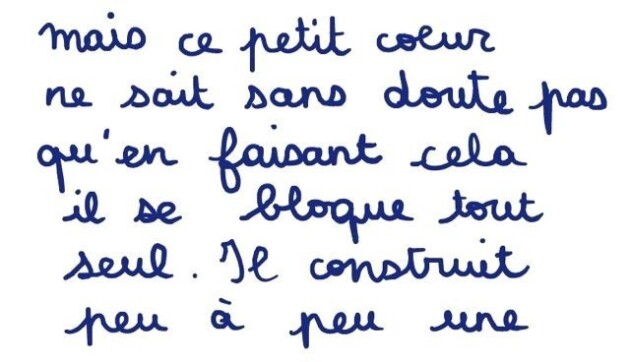 mais ce petit coeur
ne sait sans doute pas
qu'en faisant cela
il se bloque tout
seul. Il construit
peu à peu une